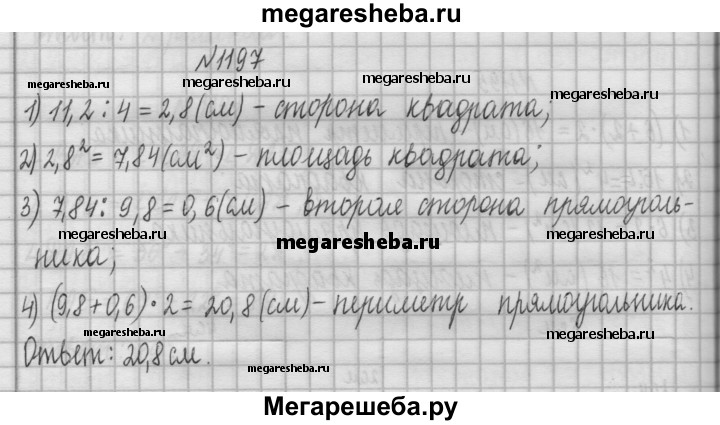 megaresheba.ru
N 1197
megaresheba.ru megaresheba.ru
1) 11,2 : 4 = 2,8 (см) – сторона квадрата;
megaresheba.ru
2) 2,8² = 7,84 (см²) – площадь квадрата;
3) 7,84 : 9,8 = 0,6 (см) – вторая сторона прямоуголь-
megaresheba.ru megaresheba.ru
megaresheba.ru
ника;
4) (9,8 + 0,6) · 2 = 20,8 (см) – периметр прямоугольника.
megaresheba.ru megaresheba.ru
Ответ: 20,8 см.
megaresheba.ru
Мегарешеба.ру